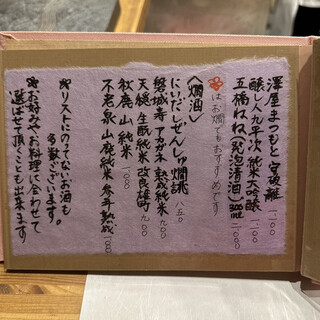 澤屋まつもと 守破離 一二〇〇
醸し人九平次 純米大吟醸 一二〇〇
五橋ねね(発泡清酒)300ml 二一〇〇
はお燗でもおすすめです
〈燗酒〉
にいだしぜんしゅ燗誂 八五〇
磐城壽 アカガネ 熟成純米 九〇〇
天穏 生酛純米 改良雄町 九〇〇
秋鹿 山 純米 一一〇〇
不老泉 山廃純米 参年熟成 一一〇〇
※リストにのってないお酒も
多数ございます。
※お好みやお料理に合わせて
選ばせて頂くことも出来ます